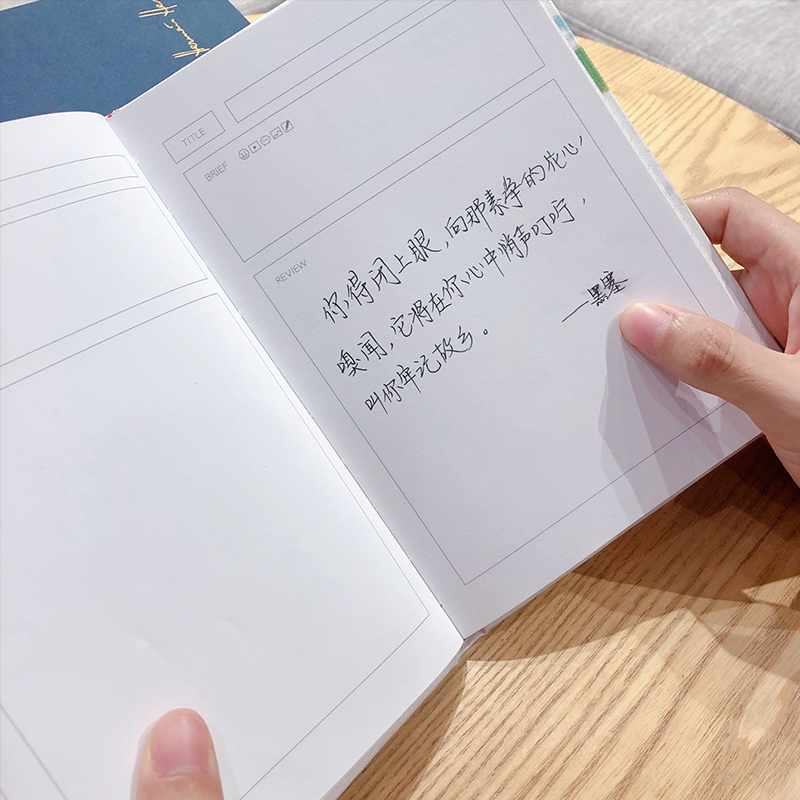 Herman He
TITLE
BRIEF
REVIEW
你得闭上眼，向那素净的花心，
嗅闻，它将在你心中悄声叮咛，
叫你牢记故乡。
—黑塞